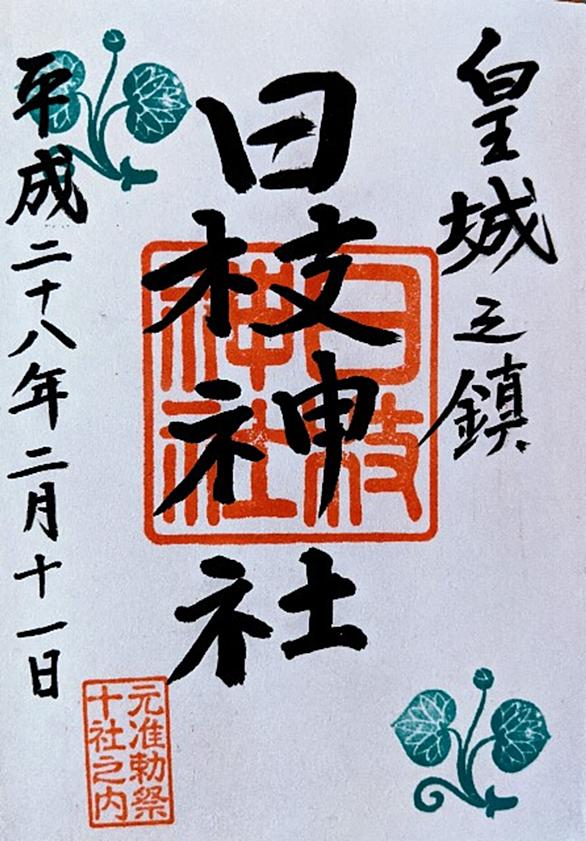 皇城之鎮
日枝神社
日枝
神社
平成二十八年二月十一日
元准勅祭
十社之内